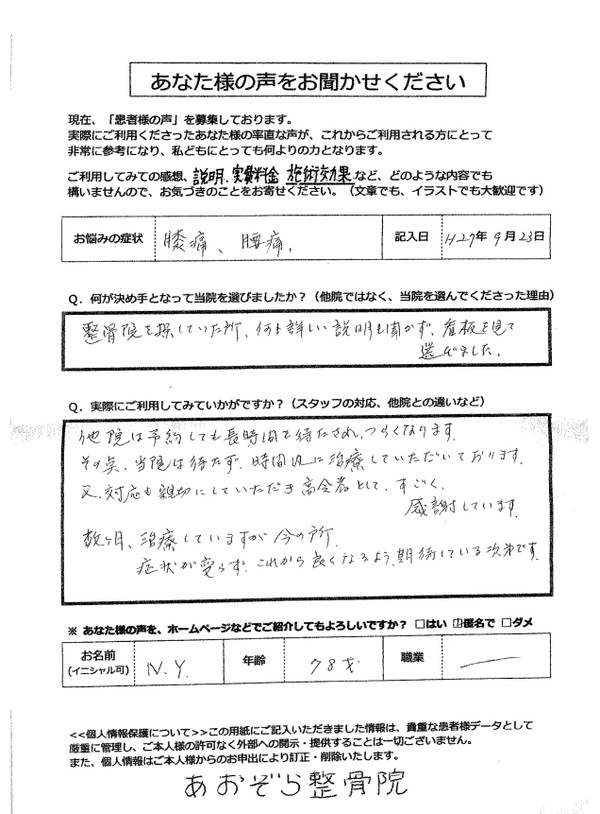 あなた様の声をお聞かせください
現在、「患者様の声」を募集しております。
実際にご利用くださったあなた様の率直な声が、これからご利用される方にとって
非常に参考になり、私どもにとっても何よりの力となります。
ご利用してみての感想、説明、実費料金 施術効果 など、どのような内容でも
構いませんので、お気づきのことをお寄せください。（文章でも、イラストでも大歓迎です）
お悩みの症状 膝痛、腰痛、 記入日 H27年9月23日
Q．何が決め手となって当院を選びましたか？（他院ではなく、当院を選んでくださった理由）
整骨院を探していた所、何も詳しい説明も聞かず、看板を見て
選びました。
Q．実際にご利用してみていかがですか？（スタッフの対応、他院との違いなど）
他院は予約しても長時間で待たされ、つらくなります。
その点、当院は待たず、時間内に治療していただいております。
又、対応も親切にしていただき高令者として、すごく、
感謝しています。
数ヶ月、治療していますが今の所、
症状が変らず、これから良くなるよう、期待している次第です。
※ あなた様の声を、ホームページなどでご紹介してもよろしいですか？ □はい ☑匿名で □ダメ
お名前 (イニシャル可) N.Y. 年齢 78才 職業 ―
<<個人情報保護について>>この用紙にご記入いただきました情報は、貴重な患者様データとして
厳重に管理し、ご本人様の許可なく外部への開示・提供することは一切ございません。
また、個人情報はご本人様からのお申出により訂正・削除いたします。
あおぞら整骨院